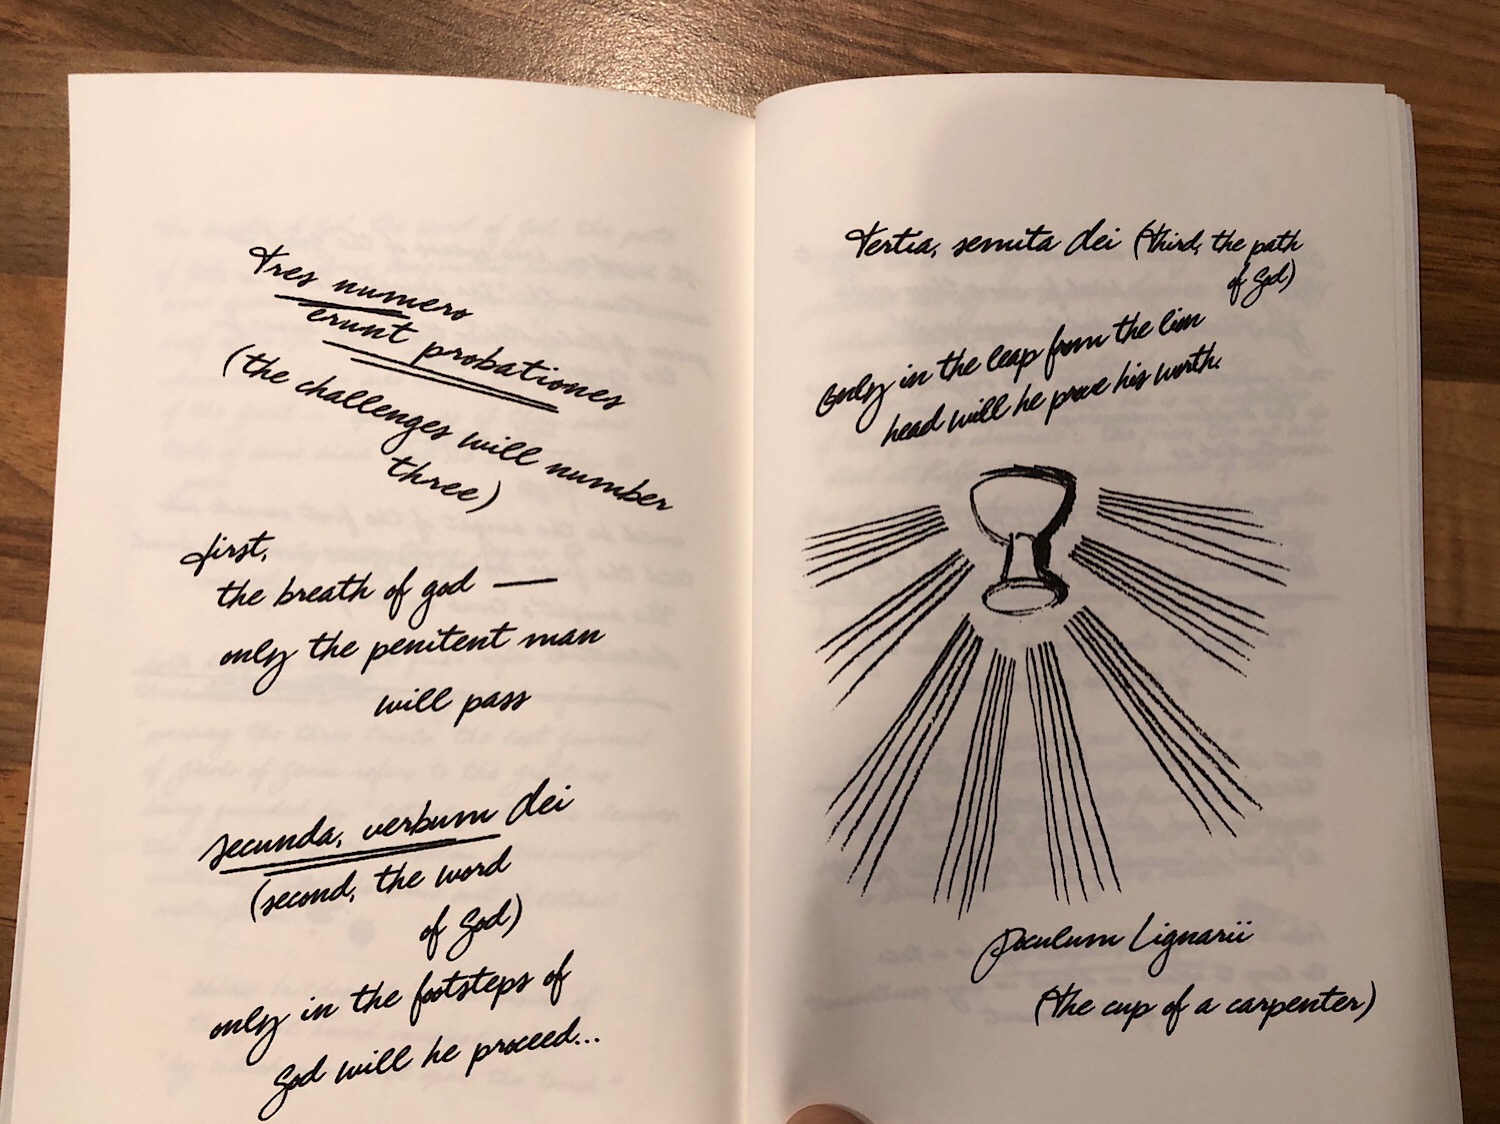 Tres numero
erunt probationes
(the challenges will number
three)
first,
the breath of god —
only the penitent man
will pass
Secunda, verbum dei
(second, the word
of God)
only in the footsteps of
God will he proceed...
Tertia, semita dei (third, the path
of God)
Only in the leap from the lion
head will he prove his worth.
Poculum Lignarii
(the cup of a carpenter)